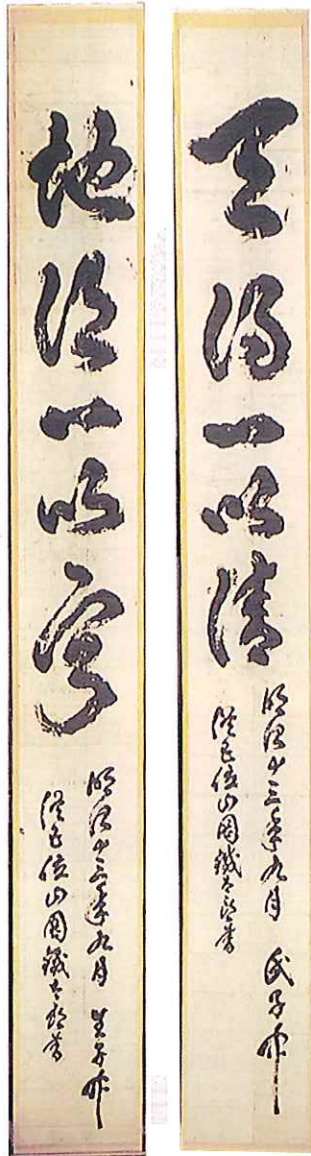 天得一以清
明治十三年九月 氏子中
従五位山岡鐵太郎書
地得一以寧
明治十三年九月 生子中
従五位山岡鐵太郎書